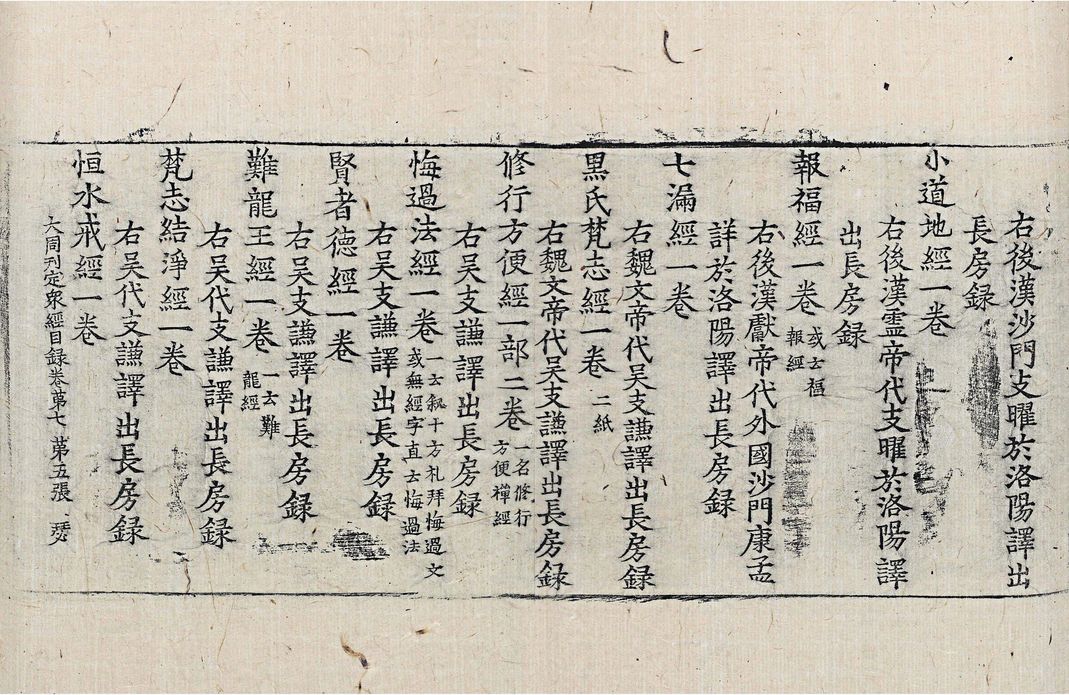 右後漢沙門支曜於洛陽譯出
長房録
小道地經一卷
右後漢靈帝代支曜於洛陽譯
出長房録
報福經一卷 或云福報經
右後漢獻帝代外國沙門康孟
詳於洛陽譯出長房録
七漏經一卷
右魏文帝代吴支謙譯出長房録
黒氏梵志經一卷 二紙
右魏文帝代吴支謙譯出長房録
修行方便經一部二卷 一名修行方便禪經
右吴支謙譯出長房録
悔過法經一卷 一云叙十方礼拜悔過文或無經字直云悔過法
右吴支謙譯出長房録
賢者德經一卷
右吴支謙譯出長房録
難龍王經一卷 一云難龍經
右吴代支謙譯出長房録
梵志結淨經一卷
右吴代支謙譯出長房録
恒水戒經一卷
大周刊定衆經目録卷第七 第五張 瑟